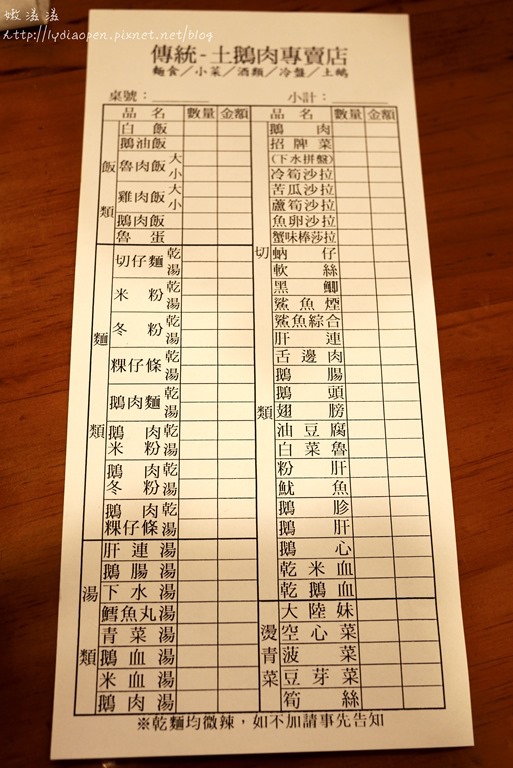 嫩滋滋
http://lydiaopen.pixnet.net/blog
傳統-土鵝肉專賣店
麵食／小菜／酒類／冷盤／土鵝
桌號：
小計：
品 名 數量 金額
飯類
白飯
鵝油飯
魯肉飯 大 小
雞肉飯 大 小
鵝肉飯
魯蛋
麵類
切仔麵 乾 湯
米粉 乾 湯
冬粉 乾 湯
粿仔條 乾 湯
鵝肉麵 乾 湯
鵝肉米粉 乾 湯
鵝肉冬粉 乾 湯
鵝肉粿仔條 乾 湯
湯類
肝連湯
鵝腸湯
下水湯
鱈魚丸湯
青菜湯
鵝血湯
米血湯
鵝肉湯
品 名 數量 金額
切類
鵝肉
招牌菜
(下水拼盤)
冷筍沙拉
苦瓜沙拉
蘆筍沙拉
魚卵沙拉
蟹味棒莎拉
蚋仔
軟絲
黑鯽
鯊魚煙
鯊魚綜合
肝連
舌邊肉
鵝腸
鵝頭
翅膀
油豆腐
白菜魯
粉肝
魷魚
鵝胗
鵝肝
鵝心
乾米血
乾鵝血
燙青菜
大陸妹
空心菜
菠菜
豆芽菜
筍絲
※乾麵均微辣，如不加請事先告知